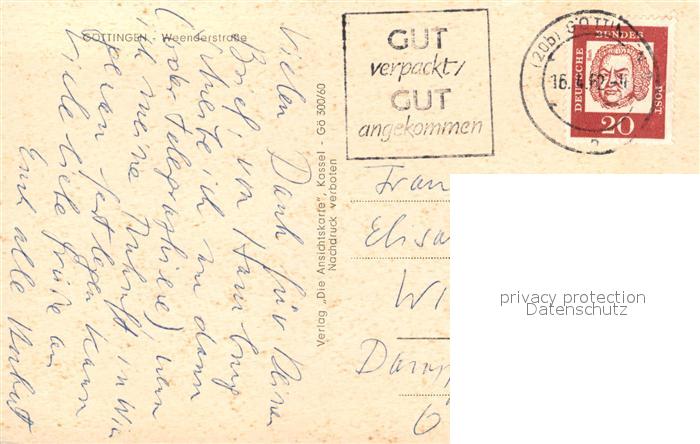 GÖTTINGEN - Weenderstraße
Vielen Dank für Deinen
Brief, von Hamburg
schreibe ich an dann
(oder telegrafiere) wann
ich meine Ankunft in Wien
genau festlegen kann
Viele liebe Grüße an
Euch alle
Verlag „Die Ansichtskarte", Kassel - Gö 300/60
Nachdruck verboten
GUT
verpackt/
GUT
angekommen
(20b) GÖTTIN
16.
62
DEUTSCHE
BUNDES
POST
20
Fran
Elisa
Wi
Damp
6
privacy protection
Datenschutz